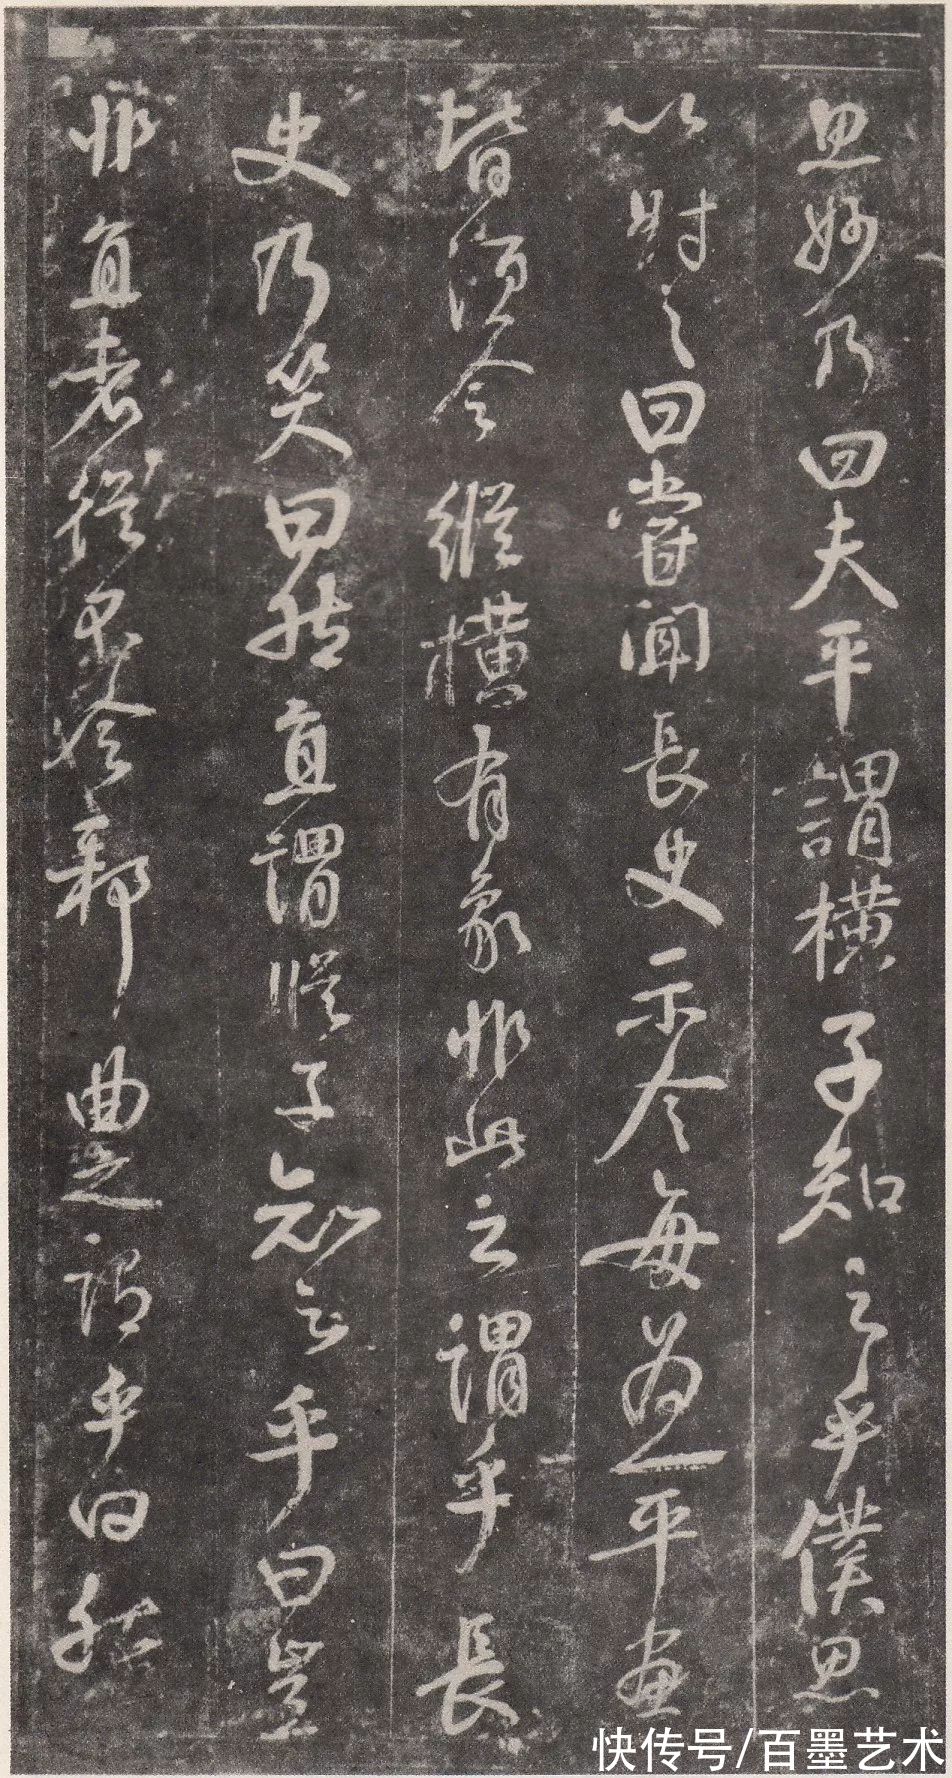 思妙乃曰夫平謂橫子知之乎僕思
以對之曰嘗聞長史示令每為一平畫
皆須令縱橫有象非此之謂乎長
史乃笑曰然直謂從子知之乎曰豈
非直者從不令邪曲之謂乎曰然
快传号/百墨艺术